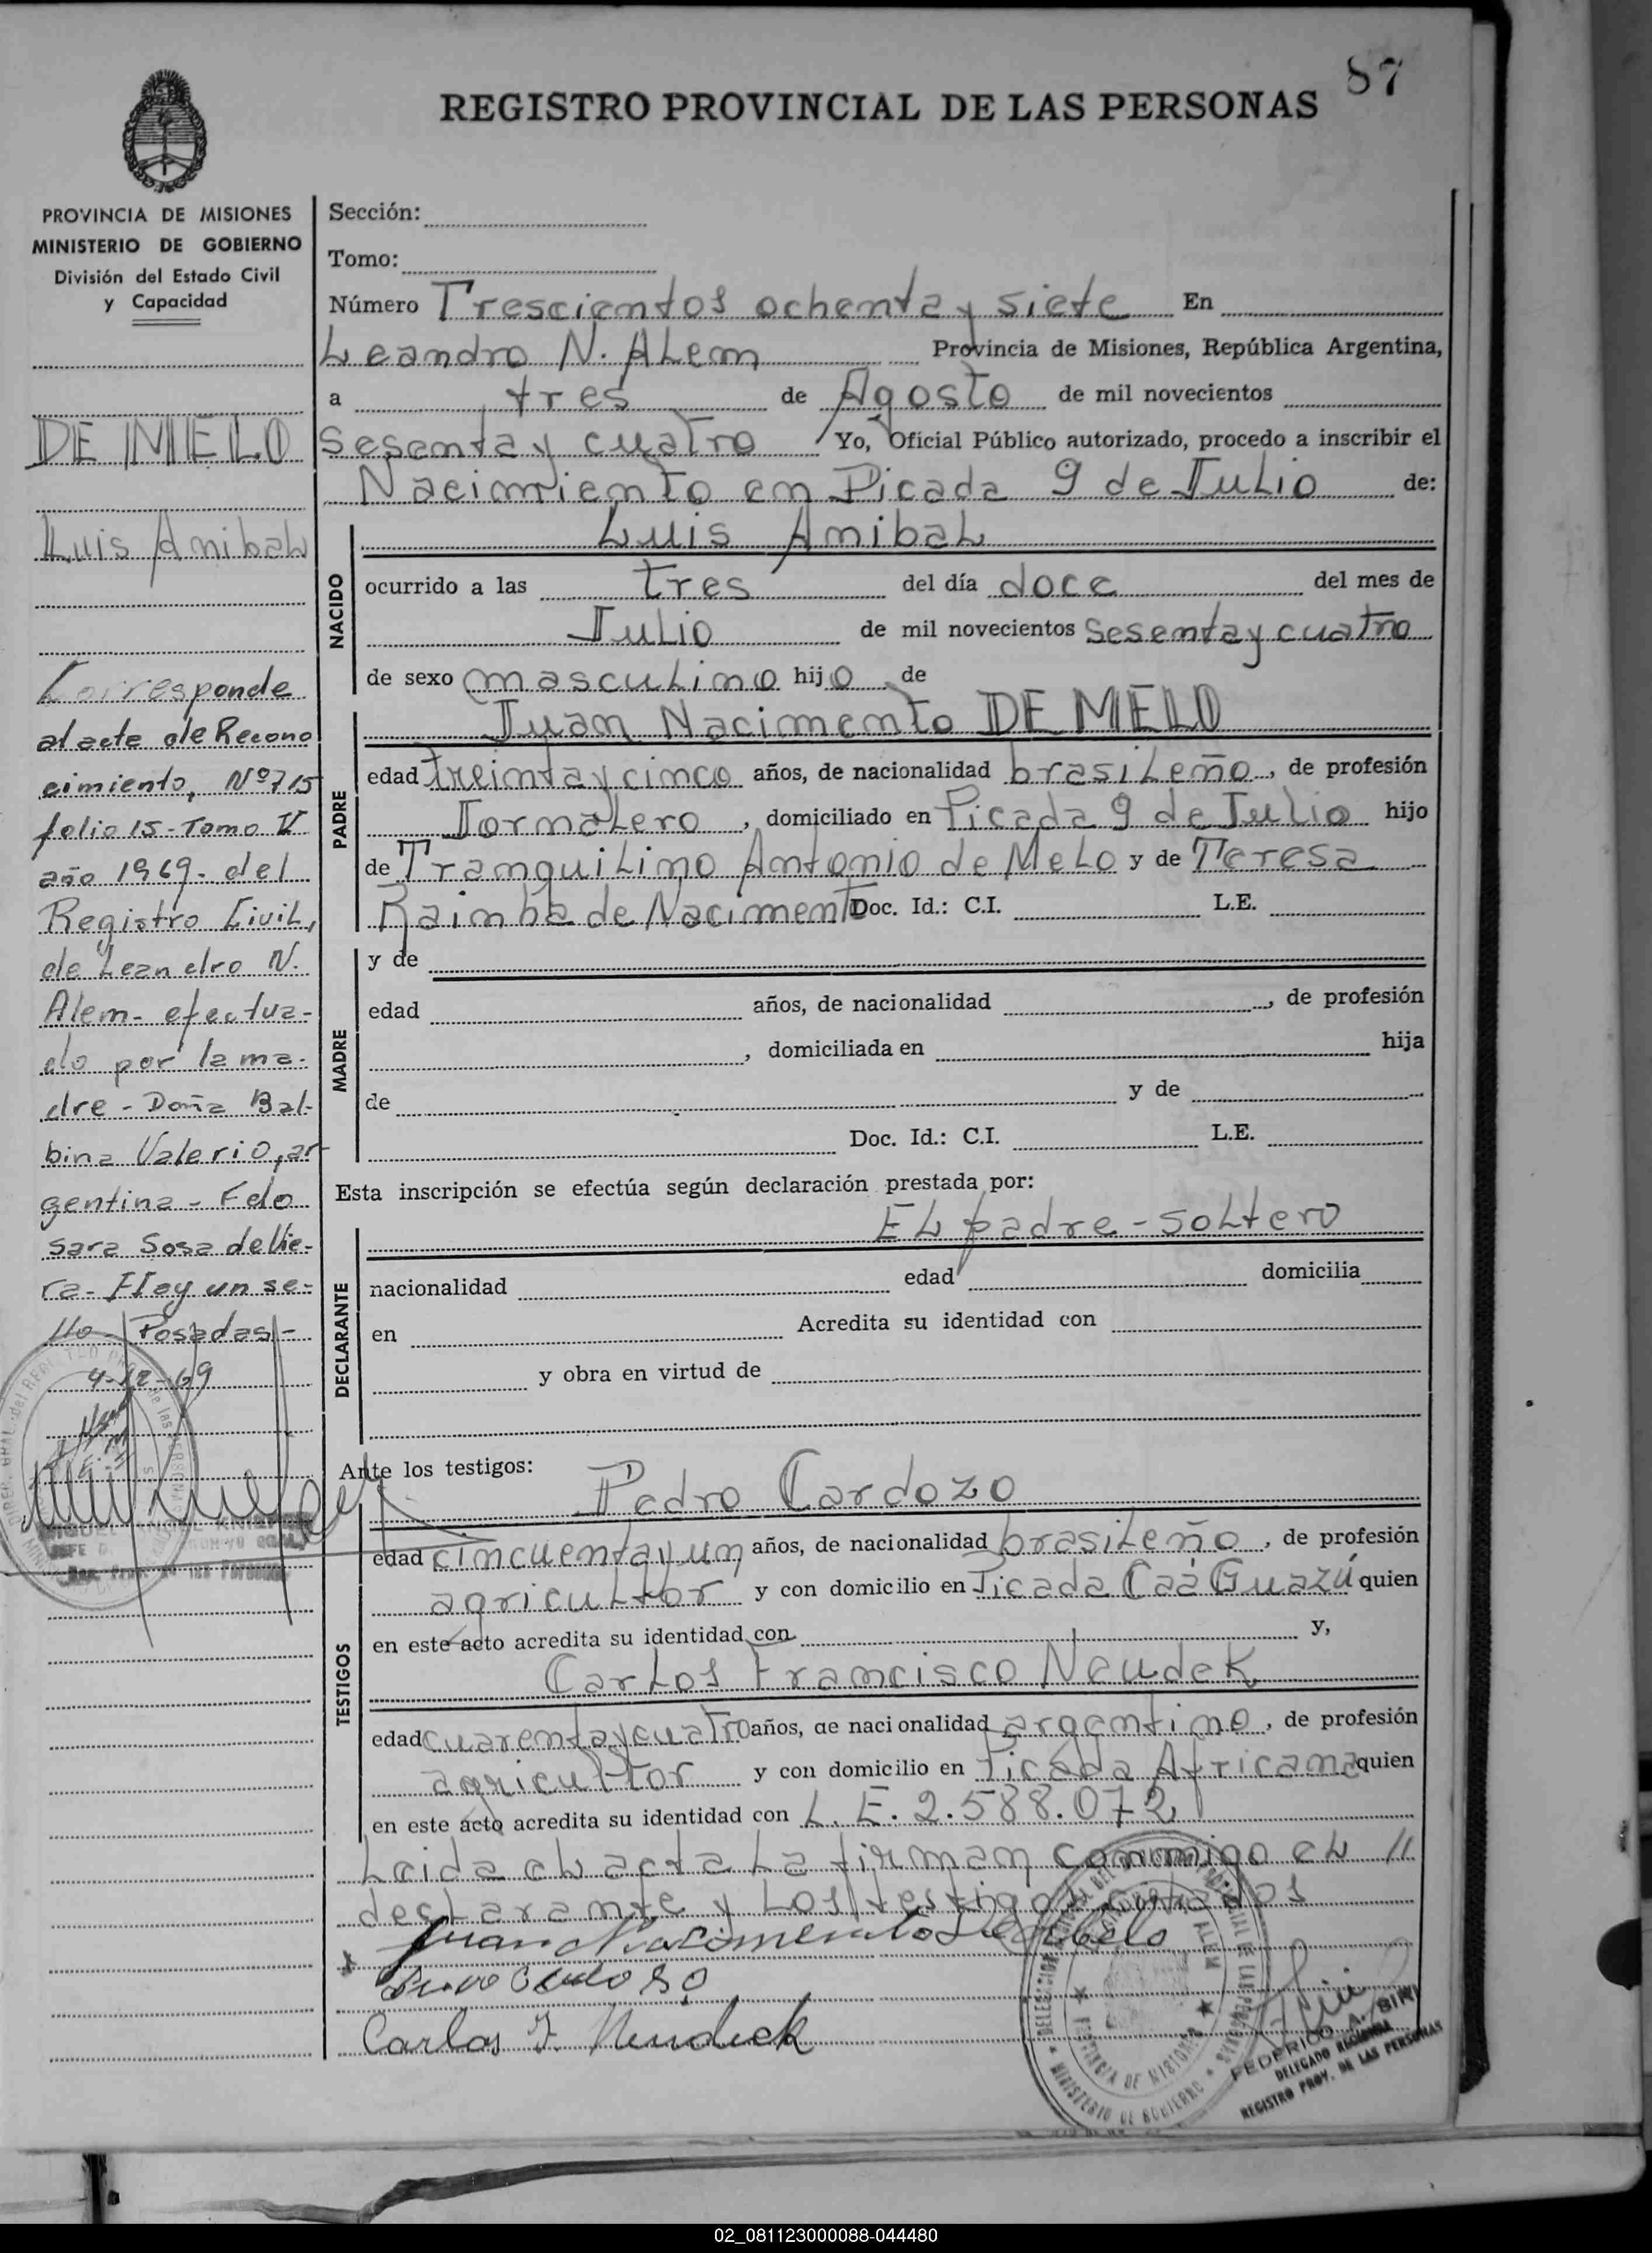 87
REGISTRO PROVINCIAL DE LAS PERSONAS
PROVINCIA DE MISIONES
MINISTERIO DE GOBIERNO
División del Estado Civil
y Capacidad
DE MELO
Luis Anibal
Corresponde
al acta de Recono
cimiento, Nº 715
folio 15 - Tomo V
año 1969 - del
Registro Civil,
de Leandro N.
Alem - efectua-
do por la ma-
dre - Doña Bal-
bina Valerio, ar
gentina - Fdo
Sara Sosa de Vie-
ra - Hay un se-
llo Posadas -
4-12-69
Sección:
Tomo:
Número Trescientos ochenta y siete En
Leandro N. Alem Provincia de Misiones, República Argentina,
a tres de Agosto de mil novecientos
Sesenta y cuatro Yo, Oficial Público autorizado, procedo a inscribir el
Nacimiento en Picada 9 de Julio de:
NACIDO
Luis Anibal
ocurrido a las tres del día doce del mes de
Julio de mil novecientos Sesenta y cuatro
de sexo masculino hijo de
PADRE
Juan Nacimento DE MELO
edad treinta y cinco años, de nacionalidad brasileño, de profesión
Jornalero, domiciliado en Picada 9 de Julio hijo
de Tranquilino Antonio de Melo y de Teresa
Rainha de Nacimento Doc. Id.: C.I. L.E.
MADRE
y de
edad años, de nacionalidad , de profesión
, domiciliada en hija
de y de
Doc. Id.: C.I. L.E.
Esta inscripción se efectúa según declaración prestada por:
El padre - soltero
DECLARANTE
nacionalidad edad domicilia
en Acredita su identidad con
y obra en virtud de
Ante los testigos: Pedro Cardozo
TESTIGOS
edad cincuenta y un años, de nacionalidad brasileño, de profesión
agricultor y con domicilio en Picada Caá Guazú quien
en este acto acredita su identidad con y,
Carlos Francisco Neudek
edad cuarenta y cuatro años, de nacionalidad argentino, de profesión
agricultor y con domicilio en Picada Africana quien
en este acto acredita su identidad con L. E. 2.588.072
Leida el acta la firman conmigo el //
declarante y los testigos citados
Juan Nacimento de Melo
Carlos F. Neudek
FEDERICO A.
DELEGADO REGIONAL
REGISTRO PROV. DE LAS PERSONAS
MINISTERIO DE GOBIERNO
02_081123000088-044480